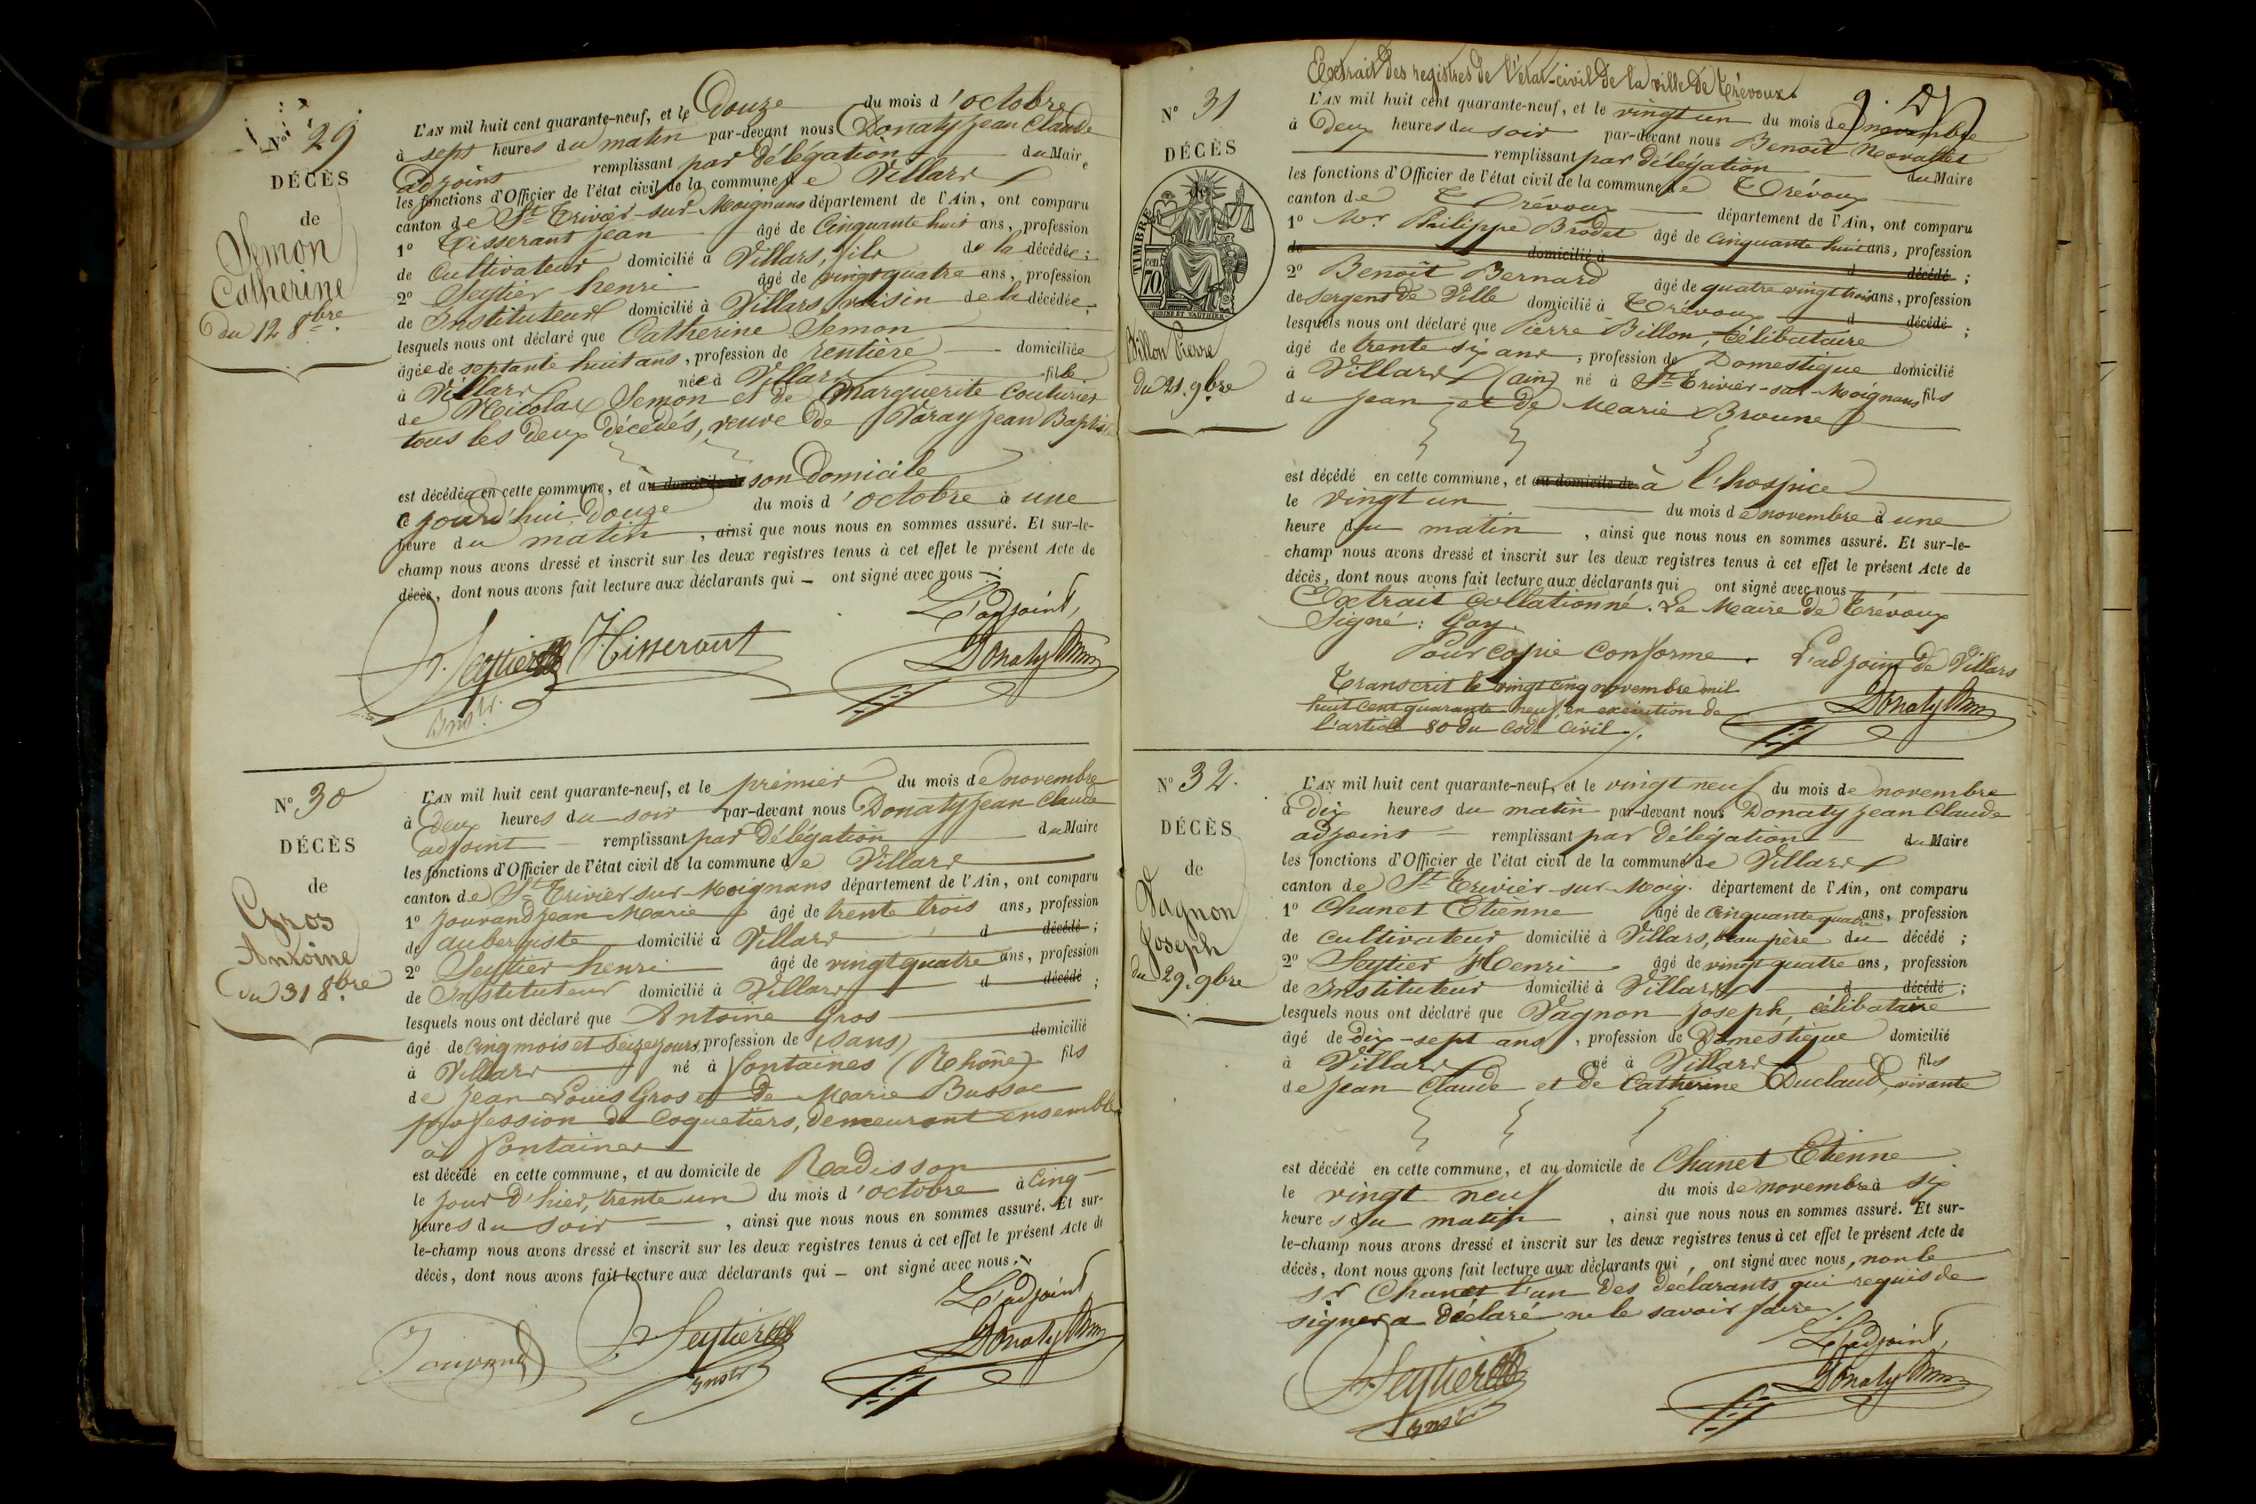 N° 29
DÉCÈS
de
Semon
Catherine
du 12 8bre.
L'AN mil huit cent quarante-neuf, et le Douze du mois d'octobre
à sept heures du matin par-devant nous Donaty Jean Claude
adjoint remplissant par délégation du Maire
les fonctions d'Officier de l'état civil de la commune de Villars
canton de St Trivier-sur-Moignans département de l'Ain, ont comparu
1° Tisserant Jean âgé de Cinquante huit ans, profession
de Cultivateur domicilié à Villars, fils de la décédée ;
2° Seytier henri âgé de vingt quatre ans, profession
de Instituteur domicilié à Villars, voisin de la décédée ;
lesquels nous ont déclaré que Catherine Semon
âgée de septante huit ans, profession de rentière domiciliée
à Villars née à Villars fille
de Nicolas Semon et de Marguerite Couturier
tous les deux décédés, veuve de Varay Jean Baptis
est décédée en cette commune, et au domicile de son Domicile
ce jourd'hui Douze du mois d'octobre à une
heure du matin, ainsi que nous nous en sommes assuré. Et sur-le-
champ nous avons dressé et inscrit sur les deux registres tenus à cet effet le présent Acte de
décès, dont nous avons fait lecture aux déclarants qui ont signé avec nous
L'adjoint,
h. Seytier Tisserant Donaty
Instr.
N° 30
DÉCÈS
de
Gros
Antoine
du 31 8bre
L'AN mil huit cent quarante-neuf, et le premier du mois de novembre
à Deux heures du soir par-devant nous Donaty Jean Claude
adjoint remplissant par délégation du Maire
les fonctions d'Officier de l'état civil de la commune de Villars
canton de St Trivier sur Moignans département de l'Ain, ont comparu
1° Jouvand Jean Marie âgé de trente trois ans, profession
de aubergiste domicilié à Villars d décédé ;
2° Seytier henri âgé de vingt quatre ans, profession
de Instituteur domicilié à Villars d décédé ;
lesquels nous ont déclaré que Antoine Gros
âgé de Cinq mois et Seize jours, profession de (sans) domicilié
à Villars né à fontaines (Rhône) fils
de Jean Louis Gros et de Marie Bussoc
profession de Coquetiers, demeurant ensemble
à fontaines
est décédé en cette commune, et au domicile de Radisson
le jour d'hier, trente un du mois d'octobre à Cinq
heures du soir, ainsi que nous nous en sommes assuré. Et sur-
le-champ nous avons dressé et inscrit sur les deux registres tenus à cet effet le présent Acte de
décès, dont nous avons fait lecture aux déclarants qui ont signé avec nous.
L'adjoint,
Jouvand h. Seytier Donaty
Instr
Extrait des registres de l'état-civil de la ville de Trévoux.
N° 31
DÉCÈS
de
TIMBRE
70 cen.
Billon Pierre
du 21. 9bre
L'AN mil huit cent quarante-neuf, et le vingt un du mois de novembre
à Deux heures du soir par-devant nous Benoît
remplissant par délégation du Maire
les fonctions d'Officier de l'état civil de la commune de Trévoux
canton de Trévoux département de l'Ain, ont comparu
1° Mr. Philippe Brodet âgé de Cinquante huit ans, profession
de domicilié à d décédé ;
2° Benoît Bernard âgé de quatre vingt trois ans, profession
de Sergent de Ville domicilié à Trévoux d décédé ;
lesquels nous ont déclaré que Pierre Billon, Célibataire
âgé de trente six ans, profession de Domestique domicilié
à Villars (ain) né à St Trivier-sur-Moignans fils
de Jean et de Marie Broune
est décédé en cette commune, et au domicile de à l'hospice
le vingt un du mois de novembre à une
heure du matin, ainsi que nous nous en sommes assuré. Et sur-le-
champ nous avons dressé et inscrit sur les deux registres tenus à cet effet le présent Acte de
décès, dont nous avons fait lecture aux déclarants qui ont signé avec nous
Extrait Collationné. Le Maire de Trévoux
Signé : Gay.
Pour copie conforme. L'adjoint de Villars
Transcrit le vingt cinq novembre mil
huit cent quarante neuf, en exécution de
l'article 80 du code civil.
Donaty
N° 32.
DÉCÈS
de
Vagnon
Joseph
du 29. 9bre
L'AN mil huit cent quarante-neuf, et le vingt neuf du mois de novembre
à Dix heures du matin par-devant nous Donaty Jean Claude
adjoint remplissant par délégation du Maire
les fonctions d'Officier de l'état civil de la commune de Villars
canton de St Trivier-sur-Moig. département de l'Ain, ont comparu
1° Chanet Etienne âgé de Cinquante quatre ans, profession
de Cultivateur domicilié à Villars, beau père du décédé ;
2° Seytier Henri âgé de vingt quatre ans, profession
de Instituteur domicilié à Villars d décédé ;
lesquels nous ont déclaré que Vagnon Joseph, célibataire
âgé de Dix-sept ans, profession de Domestique domicilié
à Villars né à Villars fils
de Jean Claude et de Catherine Duclaud, vivante
est décédé en cette commune, et au domicile de Chanet Etienne
le vingt neuf du mois de novembre à six
heures du matin, ainsi que nous nous en sommes assuré. Et sur-
le-champ nous avons dressé et inscrit sur les deux registres tenus à cet effet le présent Acte de
décès, dont nous avons fait lecture aux déclarants qui, ont signé avec nous, non le
sr Chanet l'un des déclarants qui requis de
signer a Déclaré ne le savoir faire.
L'adjoint,
h. Seytier Donaty
Instr